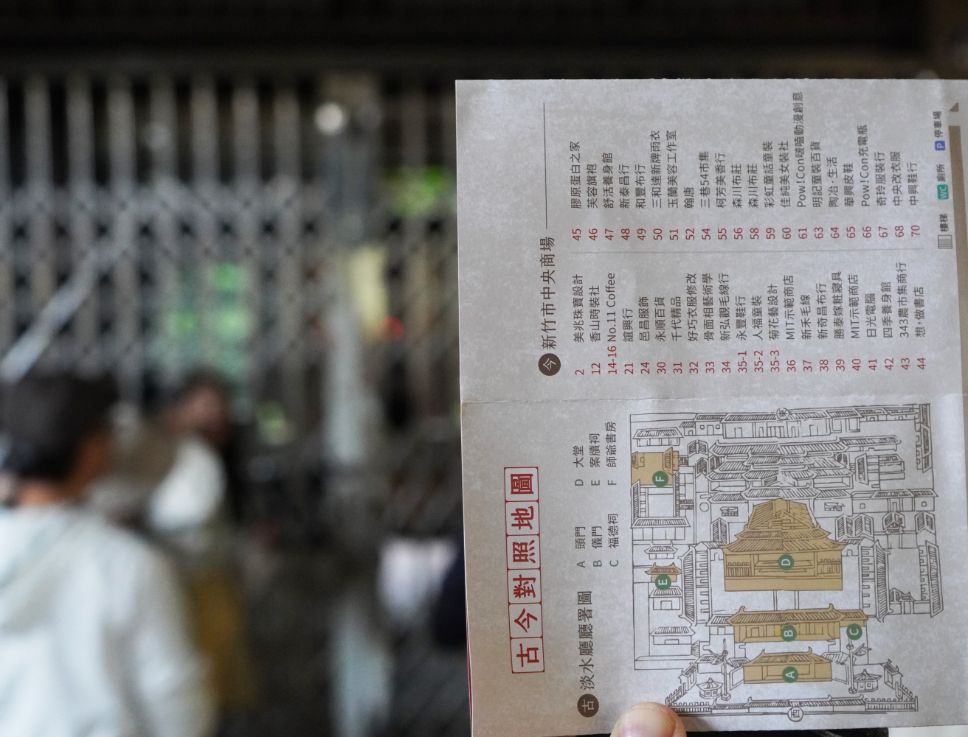 古今對照地圖
古 淡水廳廳署圖
A 頭門
B 儀門
C 福德祠
D 大堂
E 案牘祠
F 師爺書房
A
B
C
D
E
F
今 新竹市中央商場
2 美兆珠寶設計
12 香山時裝社
14-16 No.11 Coffee
21 誼興行
24 邑昌服飾
30 永順百貨
31 千代精品
32 好巧衣服修改
33 骨面相藝術學
34 新弘觀毛線行
35-1 永豐鞋行
35-2 人福童裝
35-3 菊花藝設計
36 MIT示範商店
37 新禾毛線
38 新奇昌布行
39 勝泰嫁粧寢具
40 MIT示範商店
41 日光電腦
42 四季養身館
43 343農市集商行
44 想・做書店
45 膠原蛋白之家
46 芙容旗袍
47 舒活養身館
48 新泰昌行
49 和豐布行
50 三和達新牌雨衣
51 玉蘭美容工作室
52 翰唐
54 三巷54市集
55 柯芳美香行
56 森川布莊
58 森川布莊
59 彩虹童話童裝
60 佳純美女裝社
61 Pow!Con啵嗑動漫創意
63 明記童裝百貨
64 陶冶·生活
65 華興皮鞋
66 Pow!Con充電瓶
67 奇玲服裝行
68 中央改衣服
70 中興鞋行
樓梯
WC 廁所
P 停車場